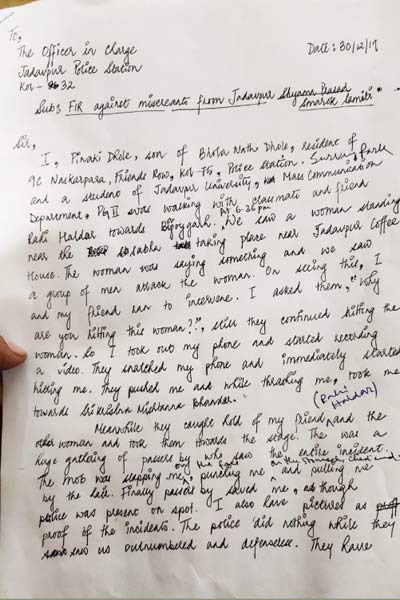 To,
The Officer in Charge
Date: 30/12/19
Jadavpur Police Station
Kol - 32
Sub: FIR against miscreants from Jadavpur Shyama Prasad
Smarok Samiti".
Sir,
I, Pinaki Dhole, son of Bhola Nath Dhole, resident of
9C Naskarpara, Friends Row, Kol-75, Police Station. Survey Park
and a student of Jadavpur University, Mass Communication
Department, PG II was walking with classmate and friend
Rahi Haldar towards Bijoygarh. At 6.36 pm We saw a woman standing
near the sabha taking place near Jadavpur Coffee
House. The woman was saying something and we saw
a group of men attack the woman. On seeing this, I
and my friend ran to intervene. I asked them, "Why
are you hitting this woman?", still they continued hitting the
woman. So I took out my phone and started recording
a video. They snatched my phone and immediately started
hitting me. They pushed me and while thrashing me, took me
towards Sri Krishna Mistanna Bhandar.
Meanwhile they caught hold of my friend (Rahi Haldar) and the
woman and took them towards the stage. The was a
huge gathering of passers by who saw the entire incident.
The mob was slapping me, on the face punching me on the stomach and pulling me
by the Finally passers by saved me, though
police was present on spot. I also have pictures as
proof of the incidents. The police did nothing while they
saw us outnumbered and defenseless. They have